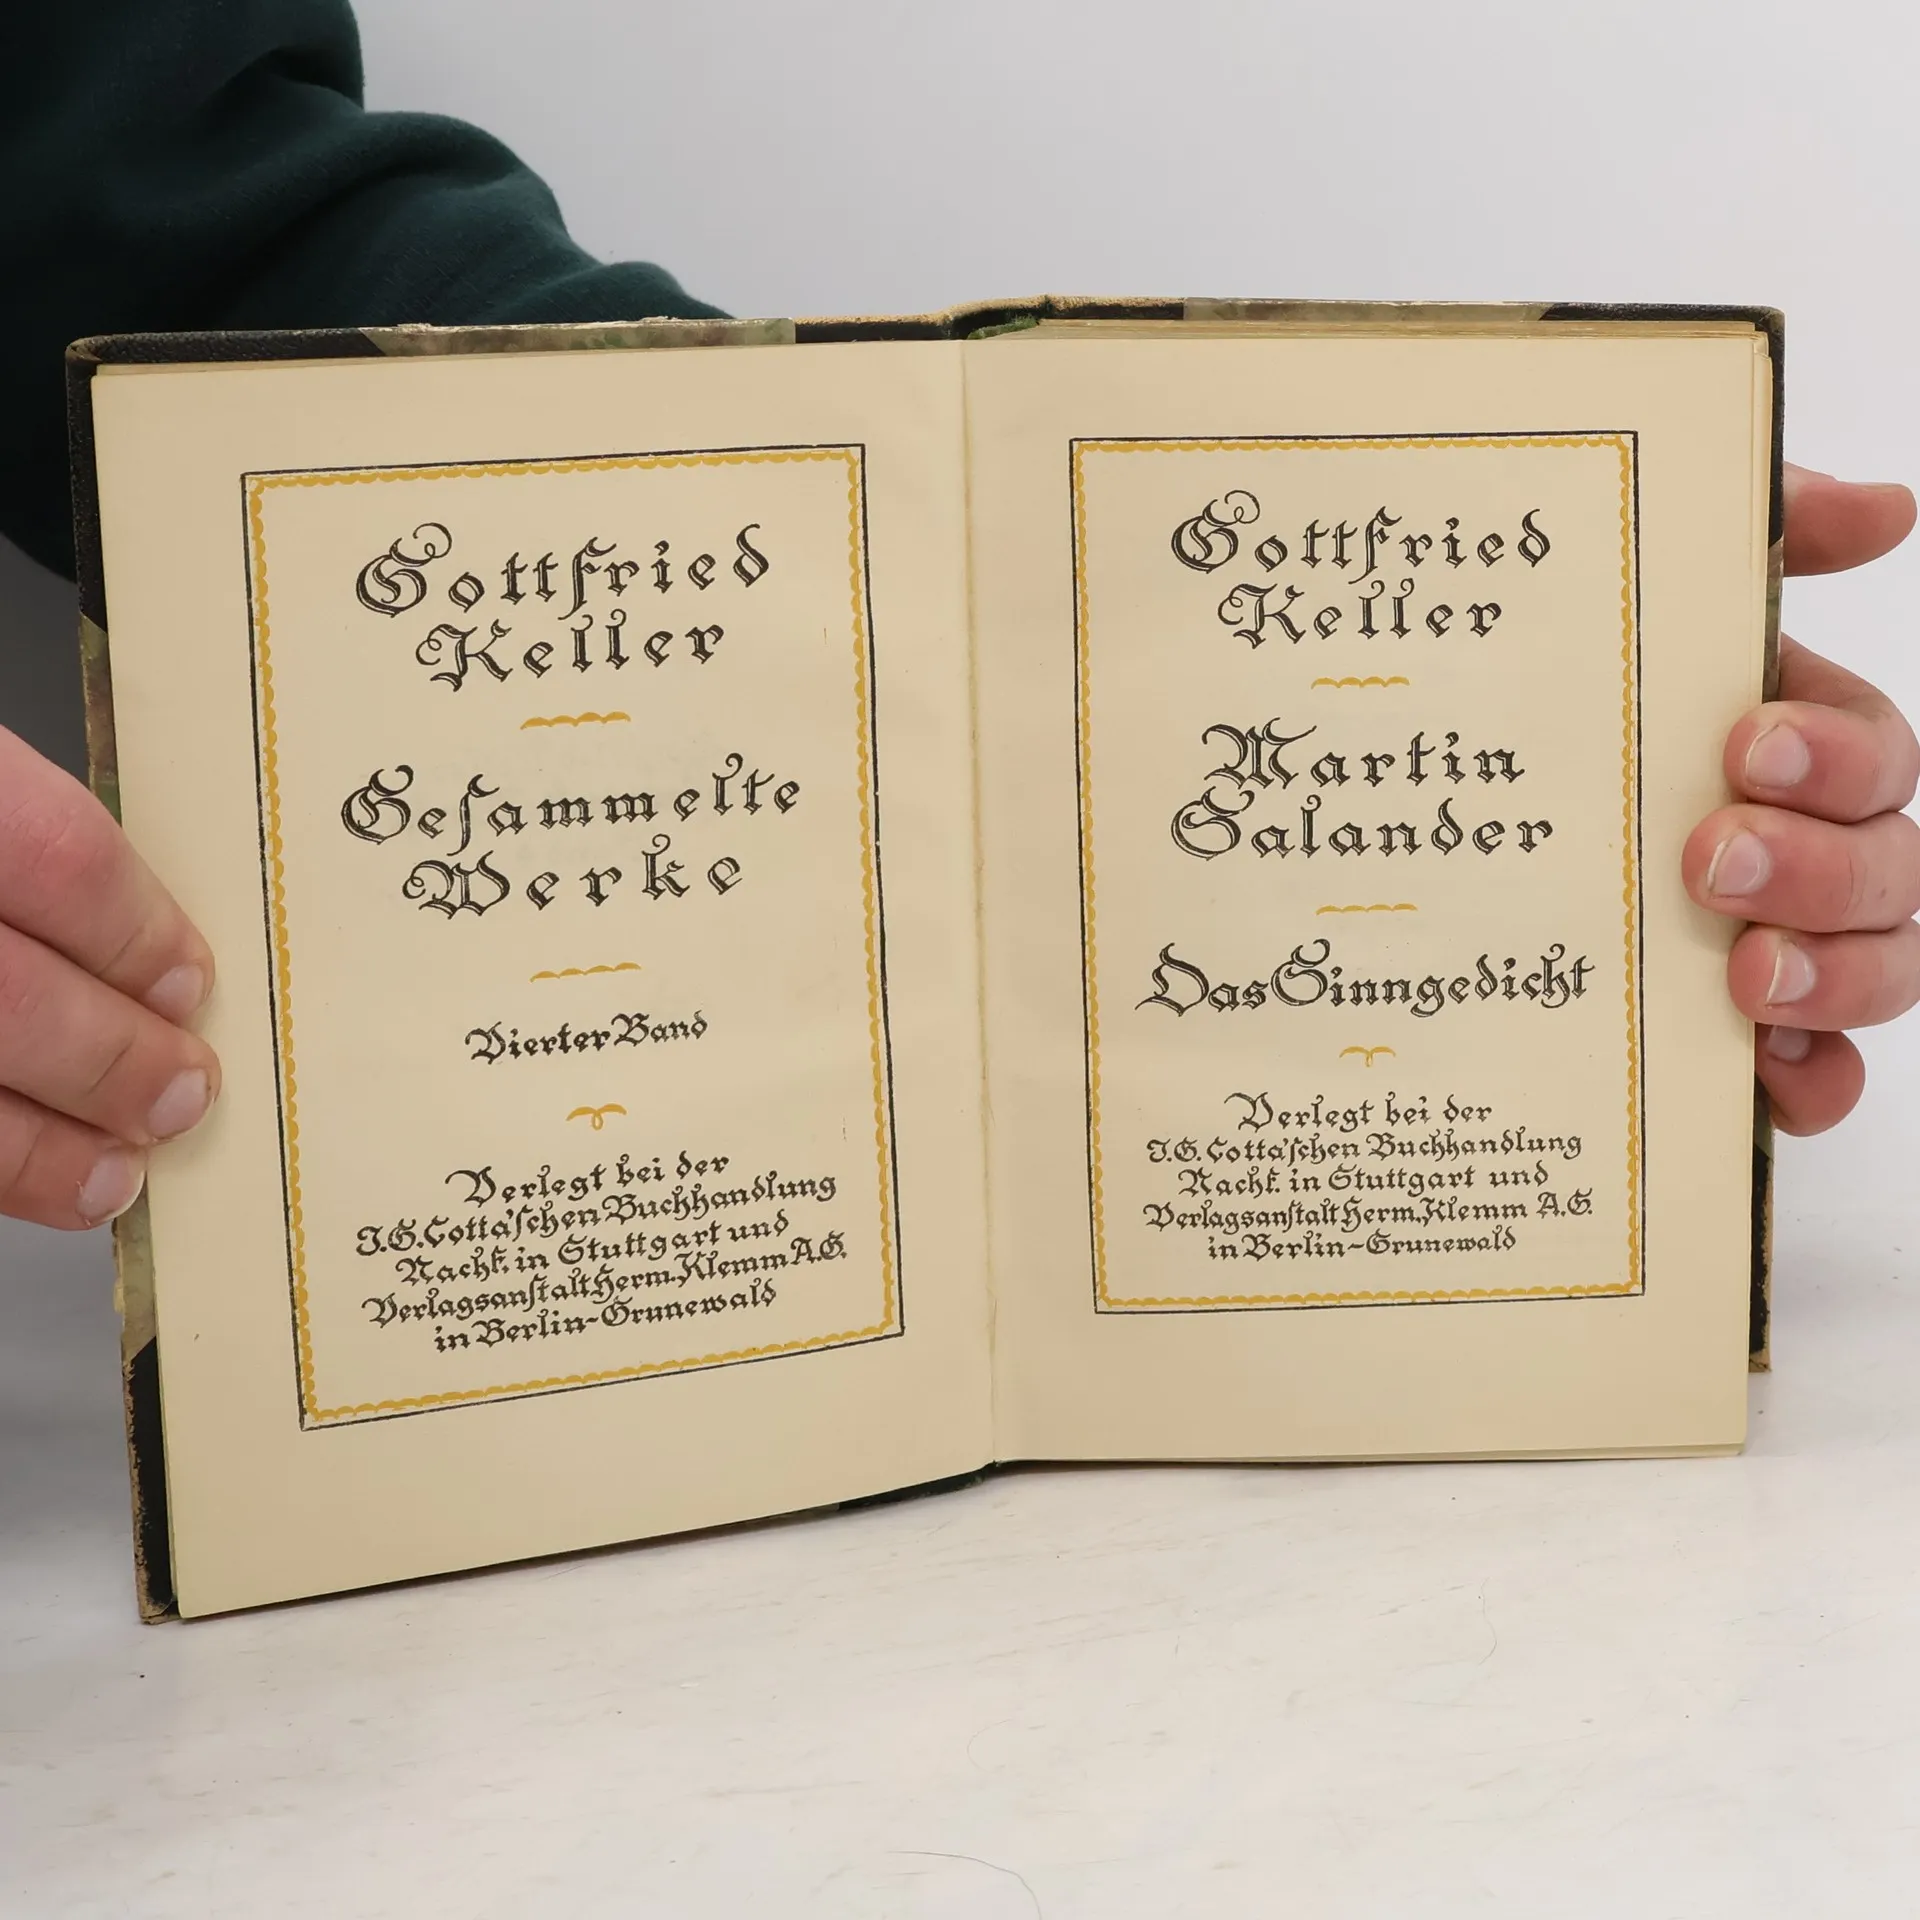 Gottfried
Keller
Gesammelte
Werke
Vierter Band
Verlegt bei der
J.G. Cotta'schen Buchhandlung
Nachf. in Stuttgart und
Verlagsanstalt Herm. Klemm A.G.
in Berlin-Grunewald
Gottfried
Keller
Martin
Salander
Das Sinngedicht
Verlegt bei der
J.G. Cotta'schen Buchhandlung
Nachf. in Stuttgart und
Verlagsanstalt Herm. Klemm A.G.
in Berlin-Grunewald